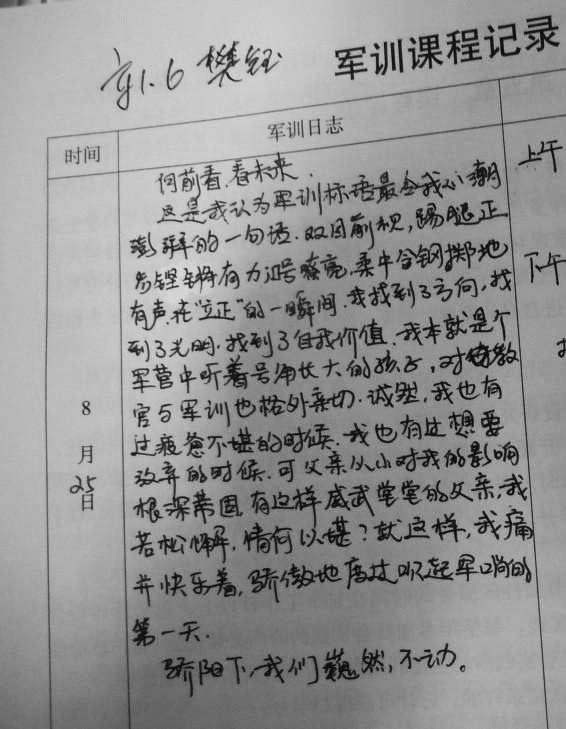 高1.6 樊钰
军训课程记录
时间
军训日志
上午
向前看,看未来.
这是我认为军训标语最令我心潮
澎湃的一句话.双目前视,踢腿正
步铿锵有力,口号嘹亮,柔中含钢掷地
有声.在"立正"的一瞬间.我找到了方向,找
下午
到了光明.找到了自我价值.我本就是个
军营中听着号角长大的孩子,对待教
官与军训也格外亲切.诚然,我也有
过疲惫不堪的时候.我也有过想要
放弃的时候.可父亲从小对我的影响
根深蒂固.有这样威武堂堂的父亲,我
若松懈,情何以堪?就这样,我痛
并快乐着,骄傲地度过吹起军哨的
第一天.
骄阳下,我们巍然,不动。
8
月
25
日